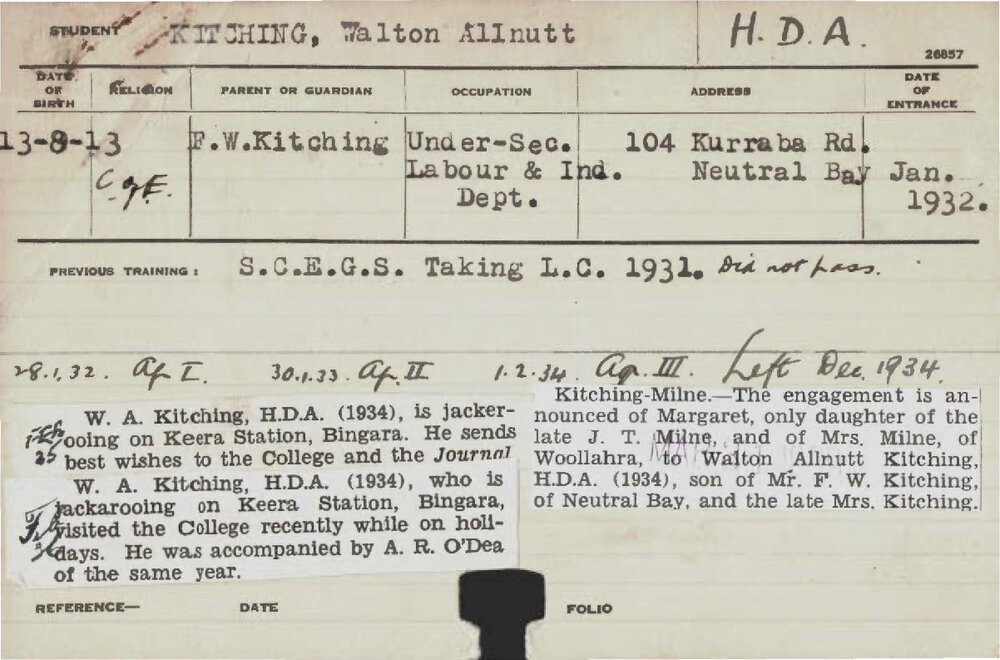 STUDENT KITCHING, Walton Allnutt H.D.A.
26857
DATE OF BIRTH RELIGION PARENT OR GUARDIAN OCCUPATION ADDRESS DATE OF ENTRANCE
13-8-13 F.W.Kitching Under-Sec. 104 Kurraba Rd.
C of E. Labour & Ind. Neutral Bay Jan.
Dept. 1932.
PREVIOUS TRAINING: S.C.E.G.S. Taking L.C. 1931. Did not pass.
28.1.32. Ag I. 30.1.33. Ag. II 1.2.34. Ag. III. Left Dec. 1934.
W. A. Kitching, H.D.A. (1934), is jacker-
ooing on Keera Station, Bingara. He sends
best wishes to the College and the Journal
35
W. A. Kitching, H.D.A. (1934), who is
jackarooing on Keera Station, Bingara,
visited the College recently while on holi-
days. He was accompanied by A. R. O'Dea
of the same year.
36
Kitching-Milne.—The engagement is an-
nounced of Margaret, only daughter of the
late J. T. Milne, and of Mrs. Milne, of
Woollahra, to Walton Allnutt Kitching,
H.D.A. (1934), son of Mr. F. W. Kitching,
of Neutral Bay, and the late Mrs. Kitching.
REFERENCE— DATE FOLIO